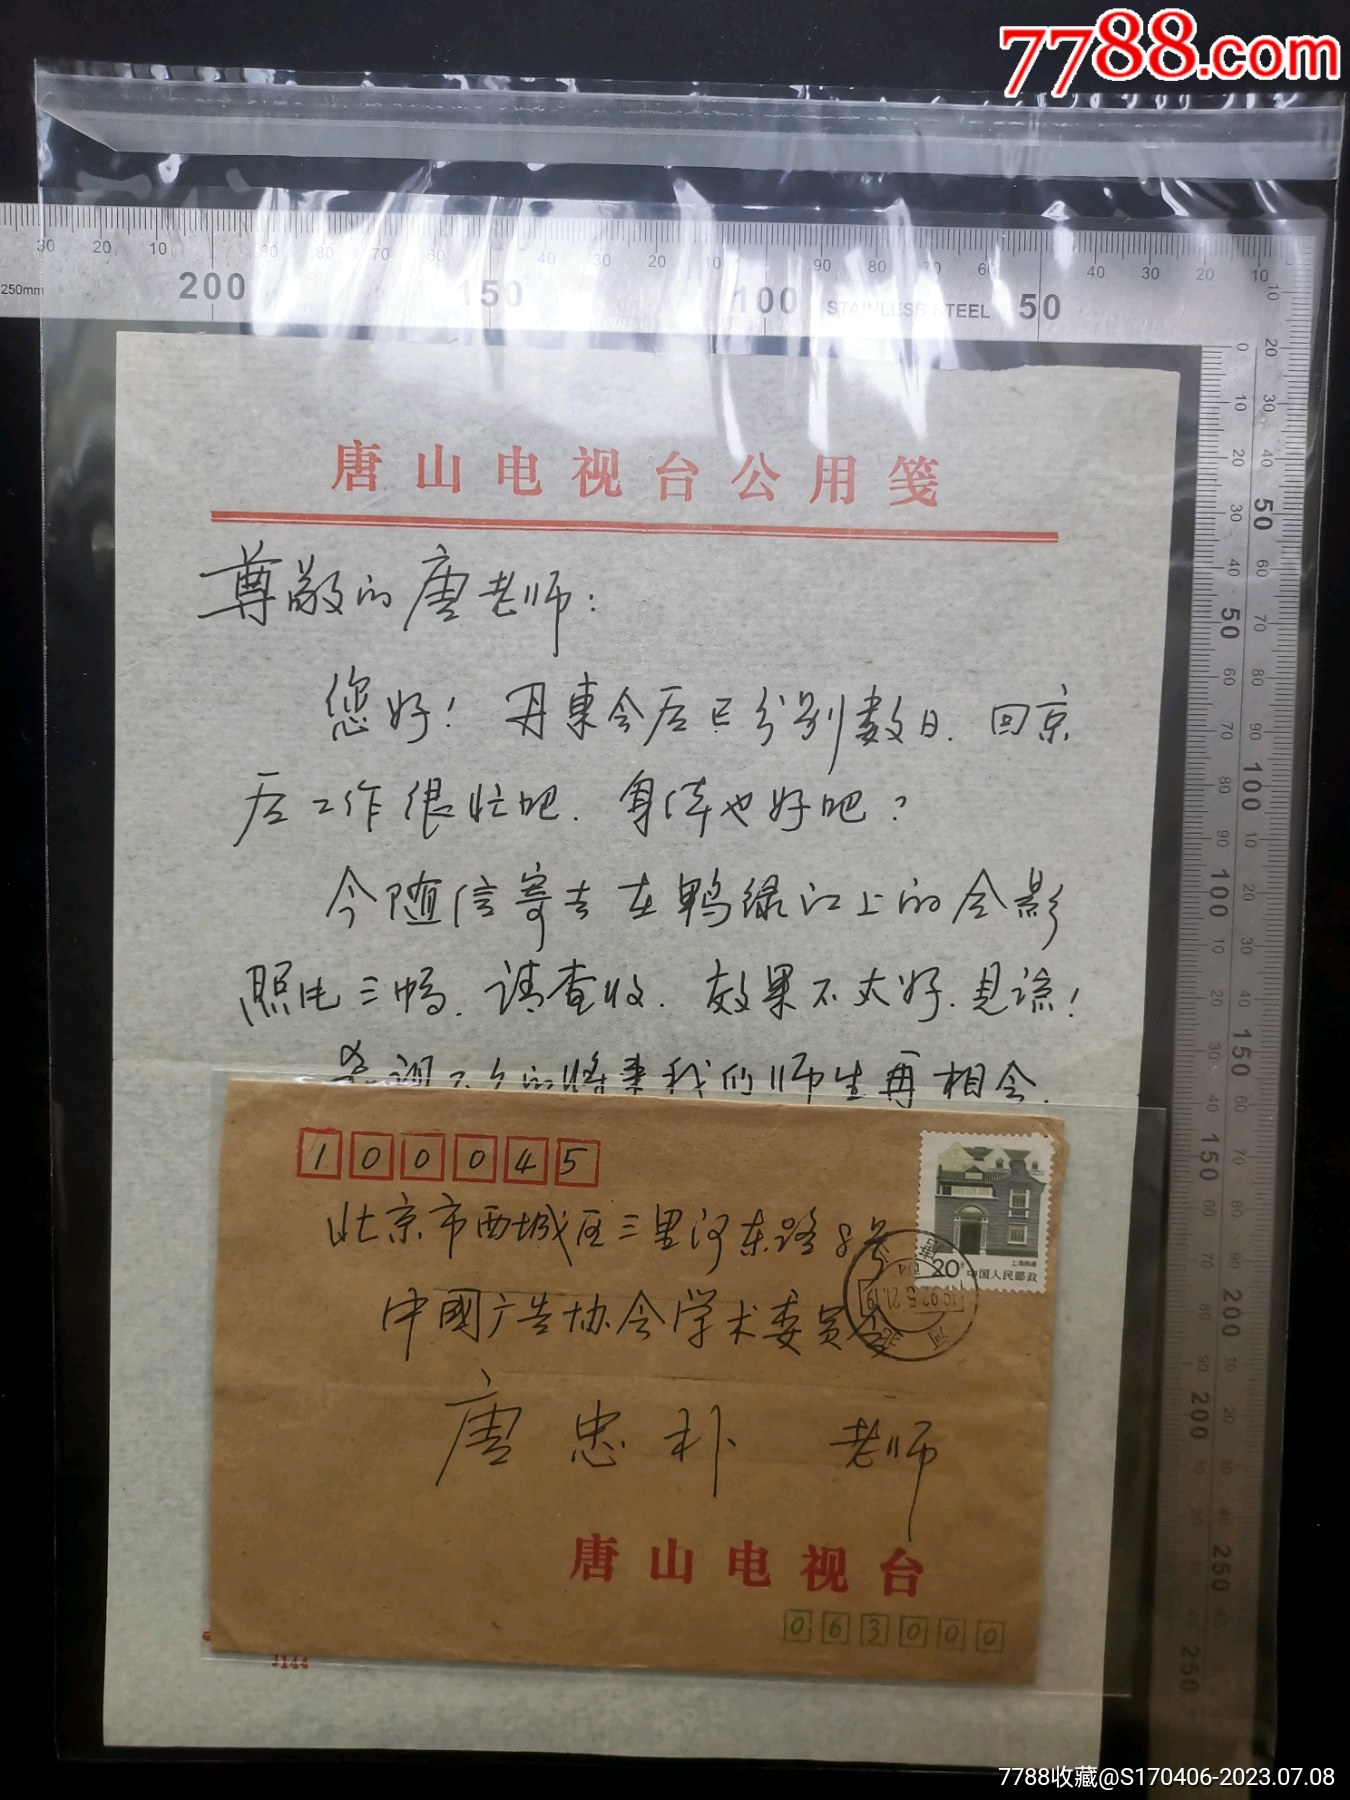 7788.com
250mm
200
150
100
50
STAINLESS STEEL
唐山电视台公用笺
尊敬的唐老师：
您好！丹東会后已分别数日．回京
后工作很忙吧．身体也好吧？
今随信寄去在鸭绿江上的合影
照片三幅．请查收．效果不太好．见谅！
希望不久的将来我们师生再相会．
100045
北京市西城区三里河东路8号
中國广告协会学术委员会
唐忠朴 老师
20分 中国人民邮政
上海民居
唐山电视台
063000
J144
7788收藏@S170406-2023.07.08